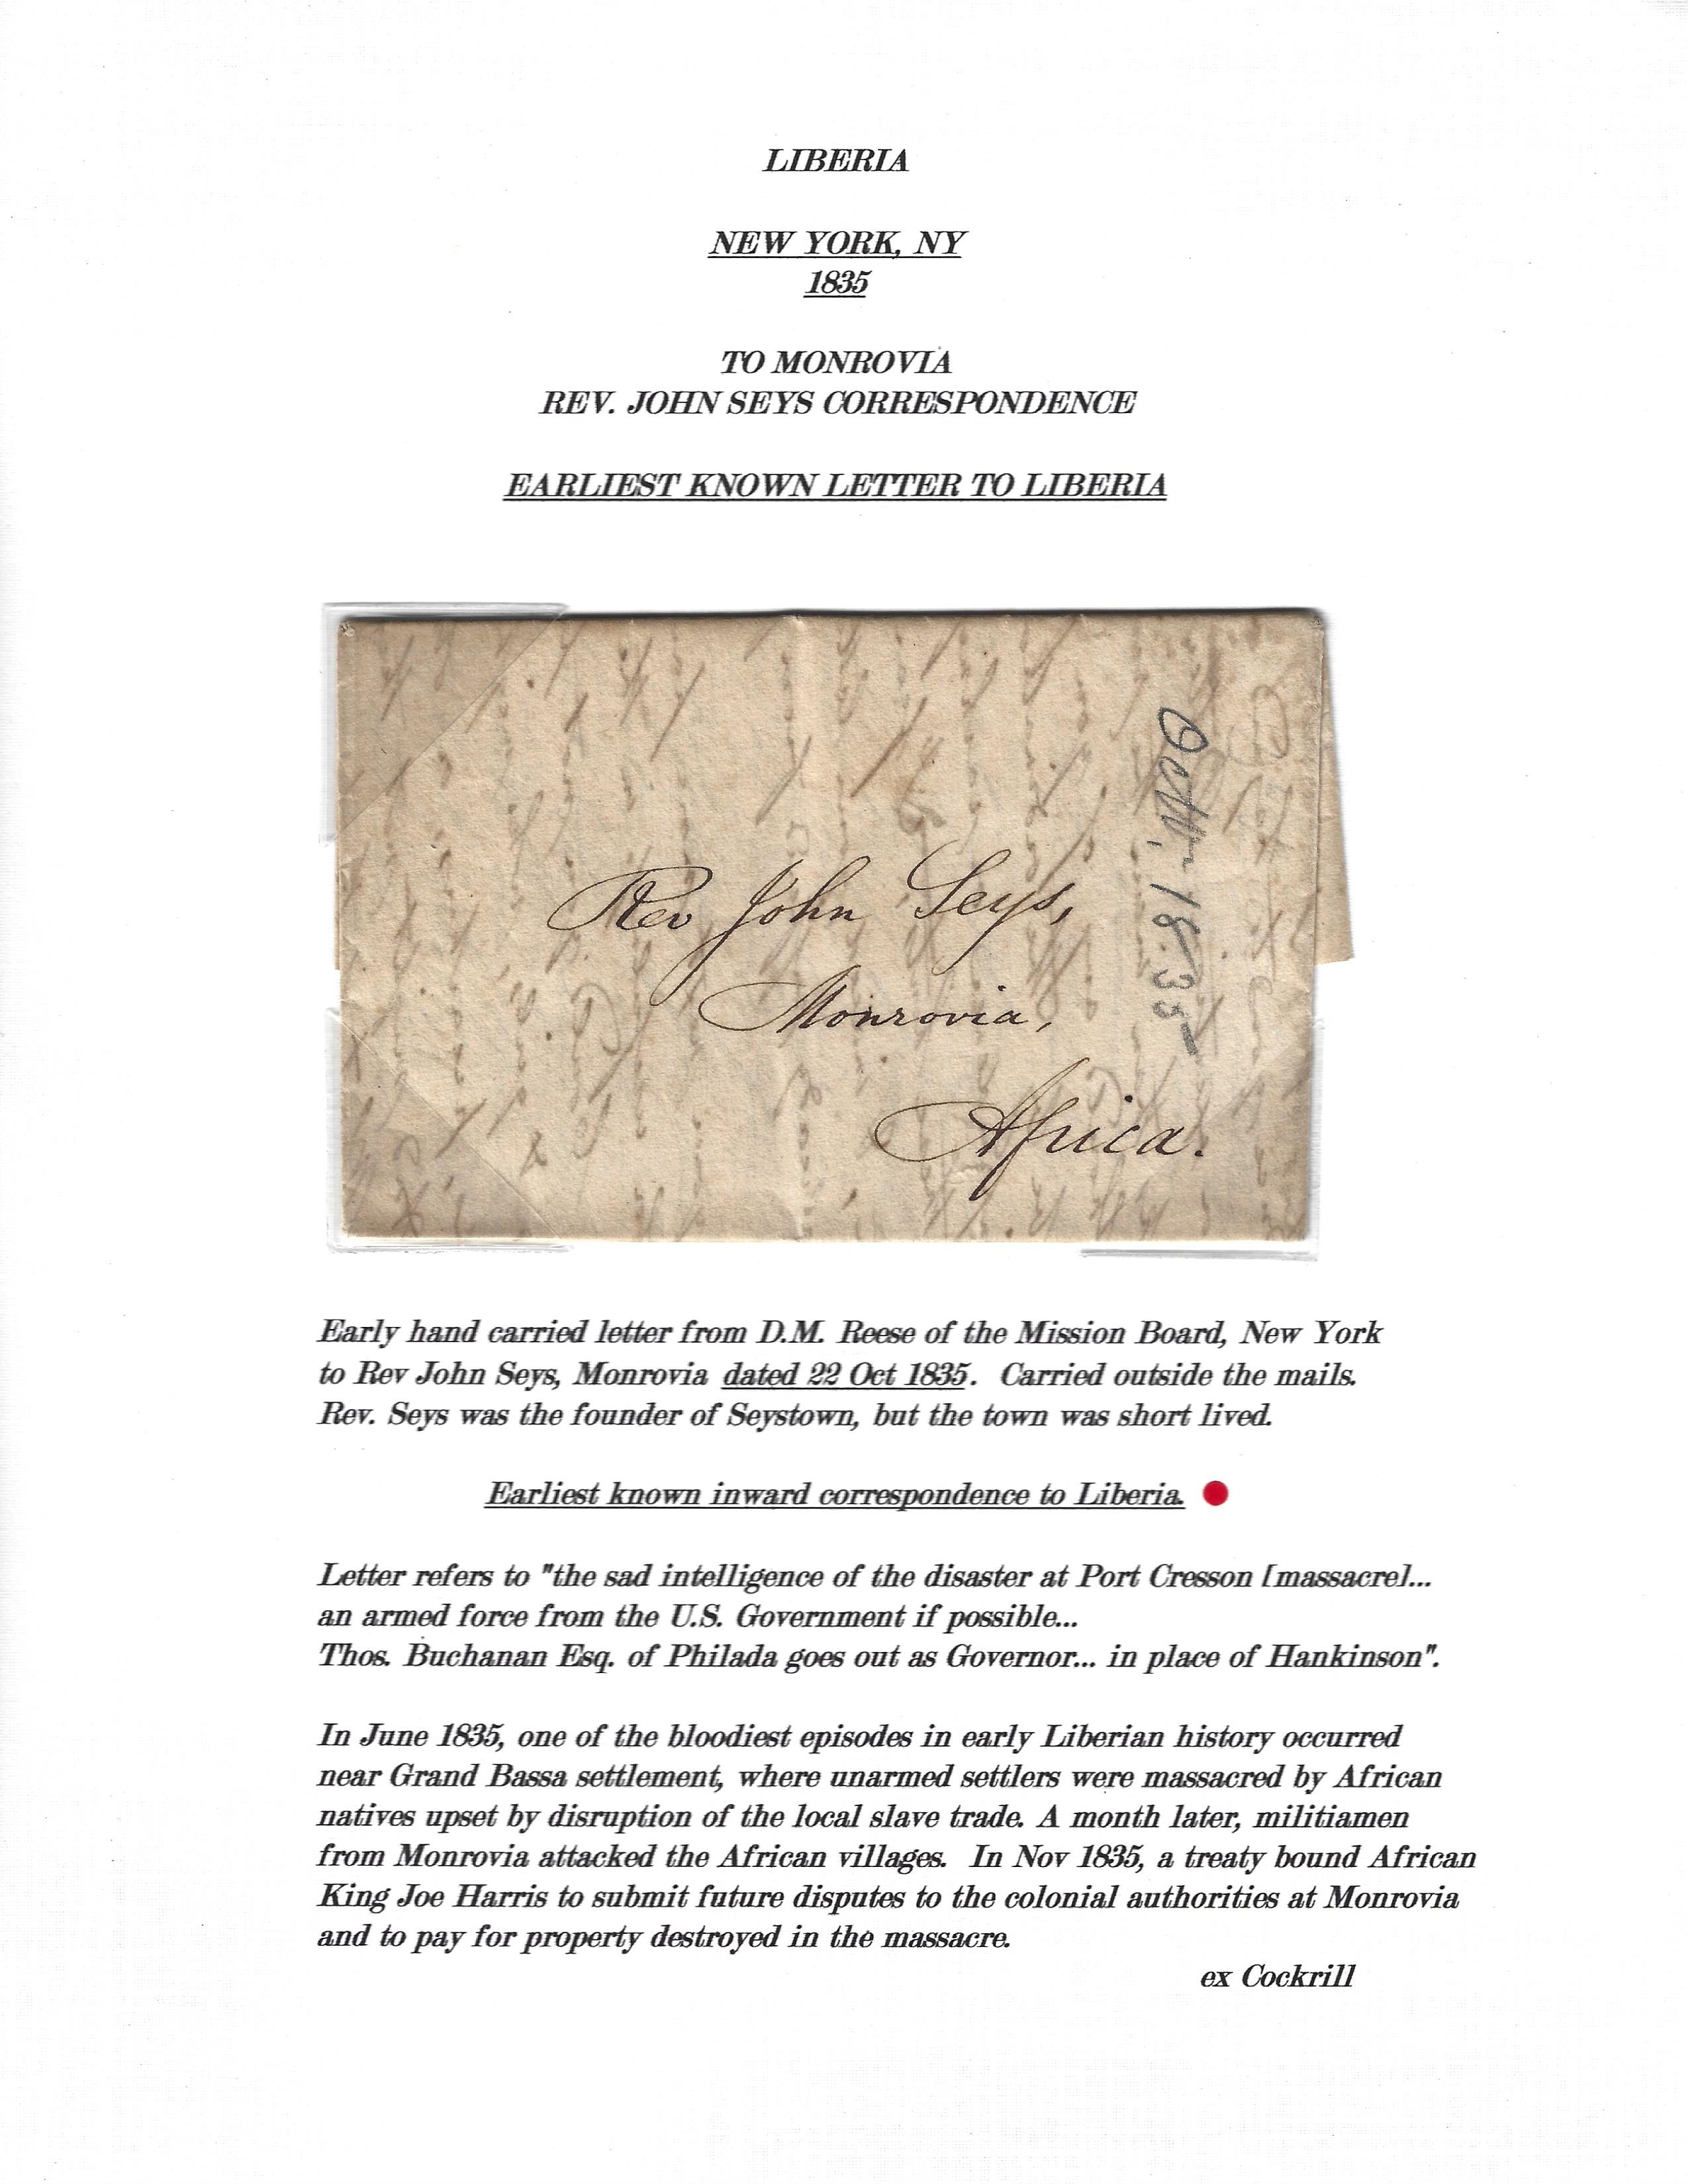 LIBERIA
NEW YORK, NY
1835
TO MONROVIA
REV. JOHN SEYS CORRESPONDENCE
EARLIEST KNOWN LETTER TO LIBERIA
Rev John Seys,
Monrovia,
Africa.
1835
Early hand carried letter from D.M. Reese of the Mission Board, New York
to Rev John Seys, Monrovia dated 22 Oct 1835. Carried outside the mails.
Rev. Seys was the founder of Seystown, but the town was short lived.
Earliest known inward correspondence to Liberia.
Letter refers to "the sad intelligence of the disaster at Port Cresson [massacre]...
an armed force from the U.S. Government if possible...
Thos. Buchanan Esq. of Philada goes out as Governor... in place of Hankinson".
In June 1835, one of the bloodiest episodes in early Liberian history occurred
near Grand Bassa settlement, where unarmed settlers were massacred by African
natives upset by disruption of the local slave trade. A month later, militiamen
from Monrovia attacked the African villages. In Nov 1835, a treaty bound African
King Joe Harris to submit future disputes to the colonial authorities at Monrovia
and to pay for property destroyed in the massacre.
ex Cockrill